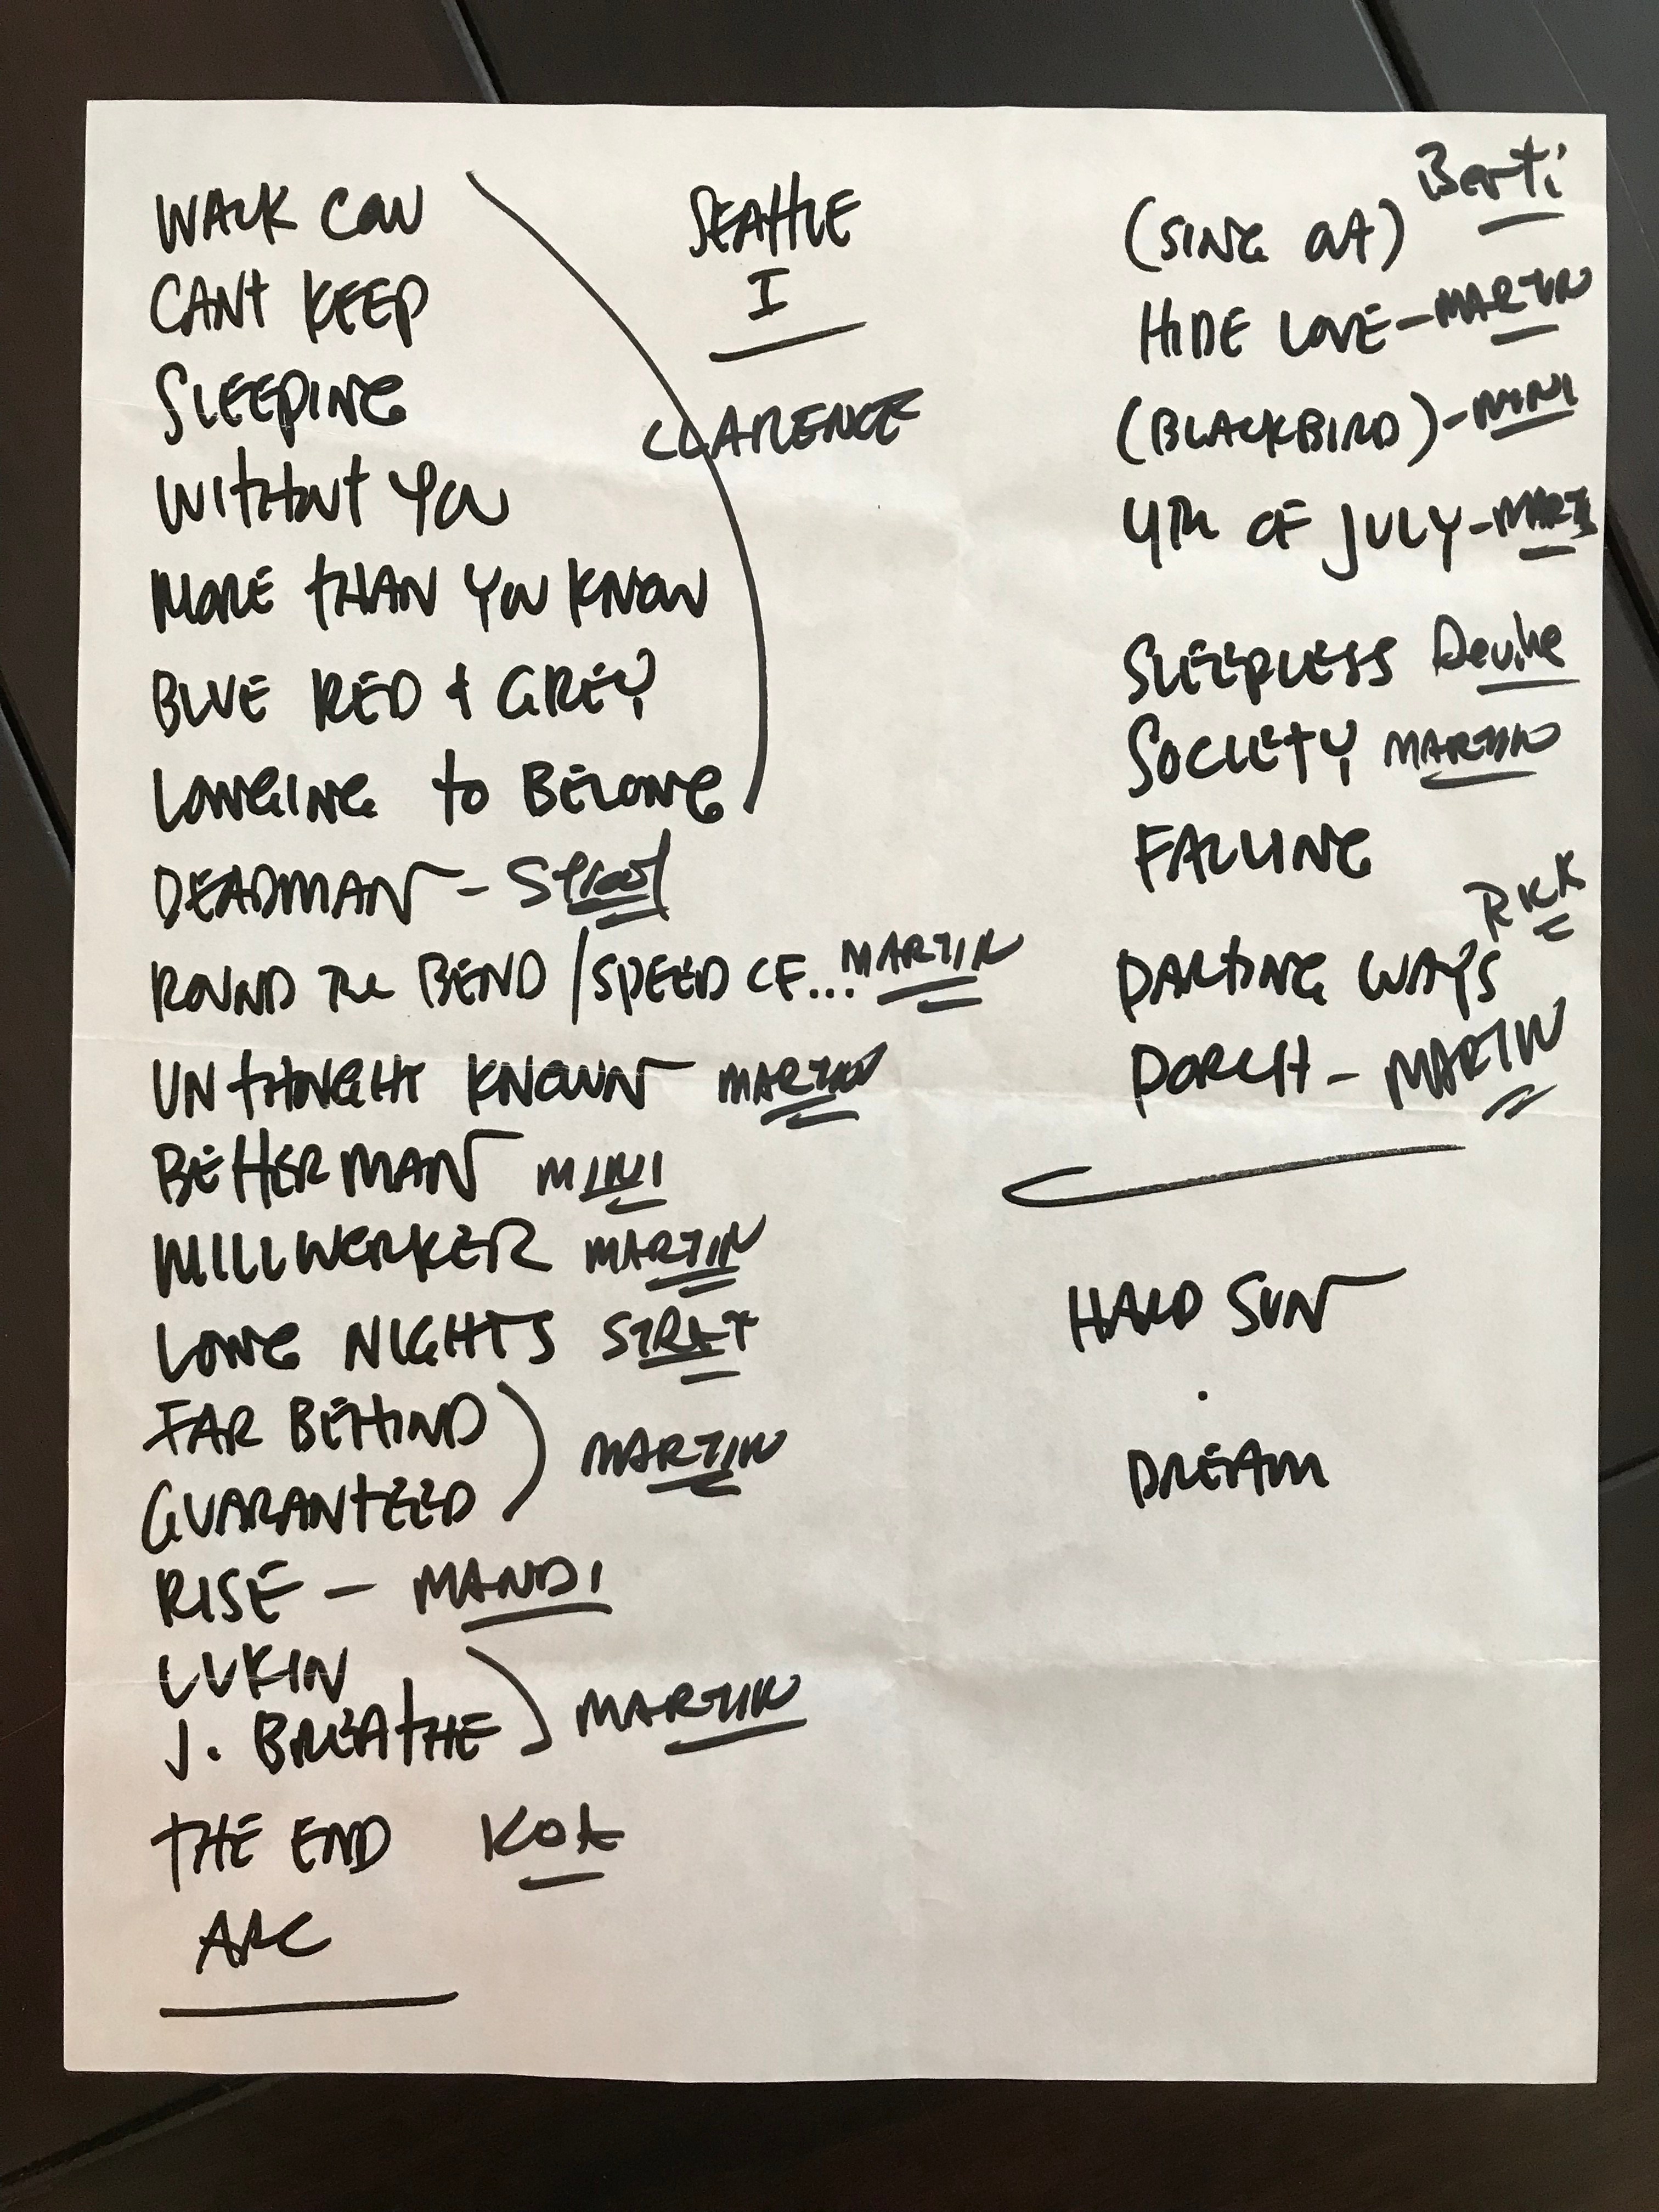 WALK COW
CANT KEEP
SLEEPING
WITHOUT YOU
MORE THAN YOU KNOW
BLUE RED + GREY
LONGING to BELONG
DEADMAN -
ROUND The BEND / SPEED OF... MARTIN
UNTHOUGHT KNOWN MARTIN
BETTERMAN MINI
MILLWORKER MARTIN
LONG NIGHTS STRAT
FAR BEHIND
GUARANTEED
MARTIN
RISE - MANDI
LUKIN
J. BREATHE
MARTIN
THE END KOA
ARC
SEATTLE
I
CLARENCE
Berti
(SING OUT)
HIDE LOVE - MARTIN
(BLACKBIRD) - MINI
4Th OF JULY - MARTIN
SLEEPLESS Deuke
SOCIETY MARTIN
FALLING
RICK
PARTING WAYS
PORCH - MARTIN
HARD SUN
.
DREAM